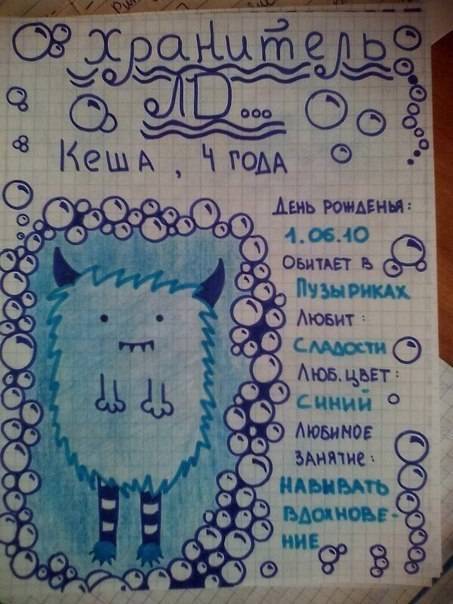 Хранитель
ЛД...
Кеша, 4 года
День рожденья:
1.06.10
Обитает в
пузыриках
Любит:
сладости
Люб. цвет:
синий
Любимое
занятие:
навивать
вдохнове-
ние